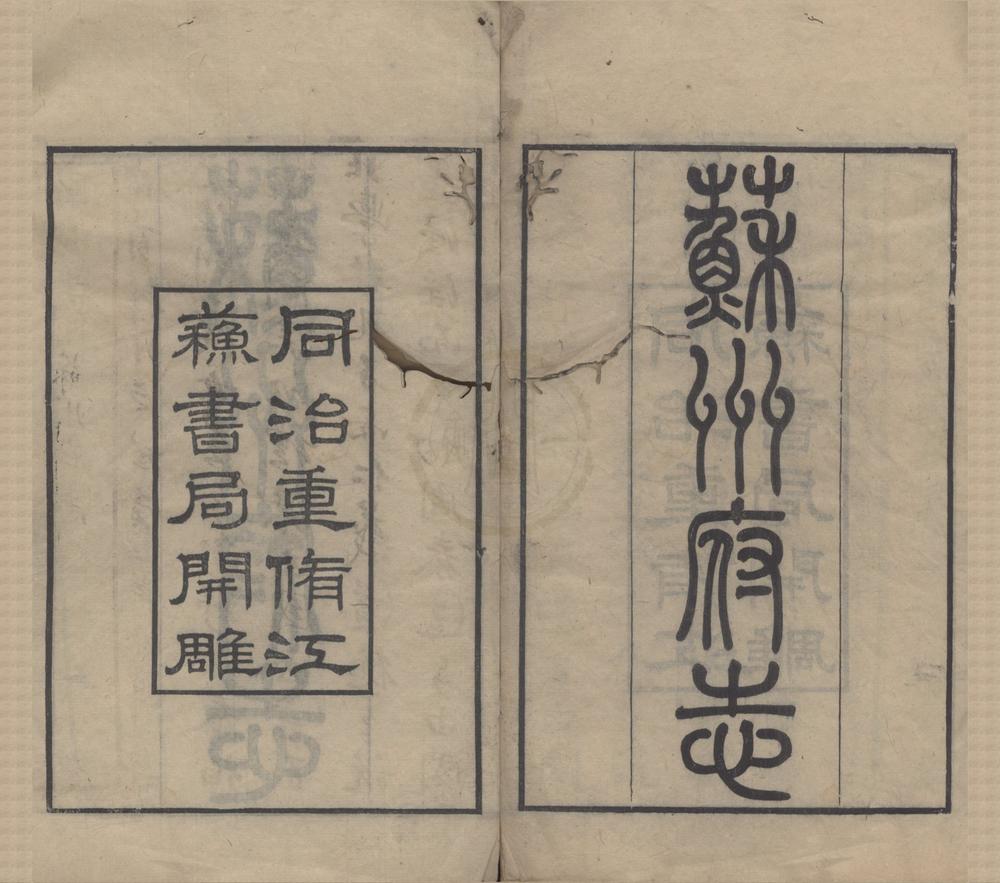 蘇州府志
同治重脩江
蘓書局開雕